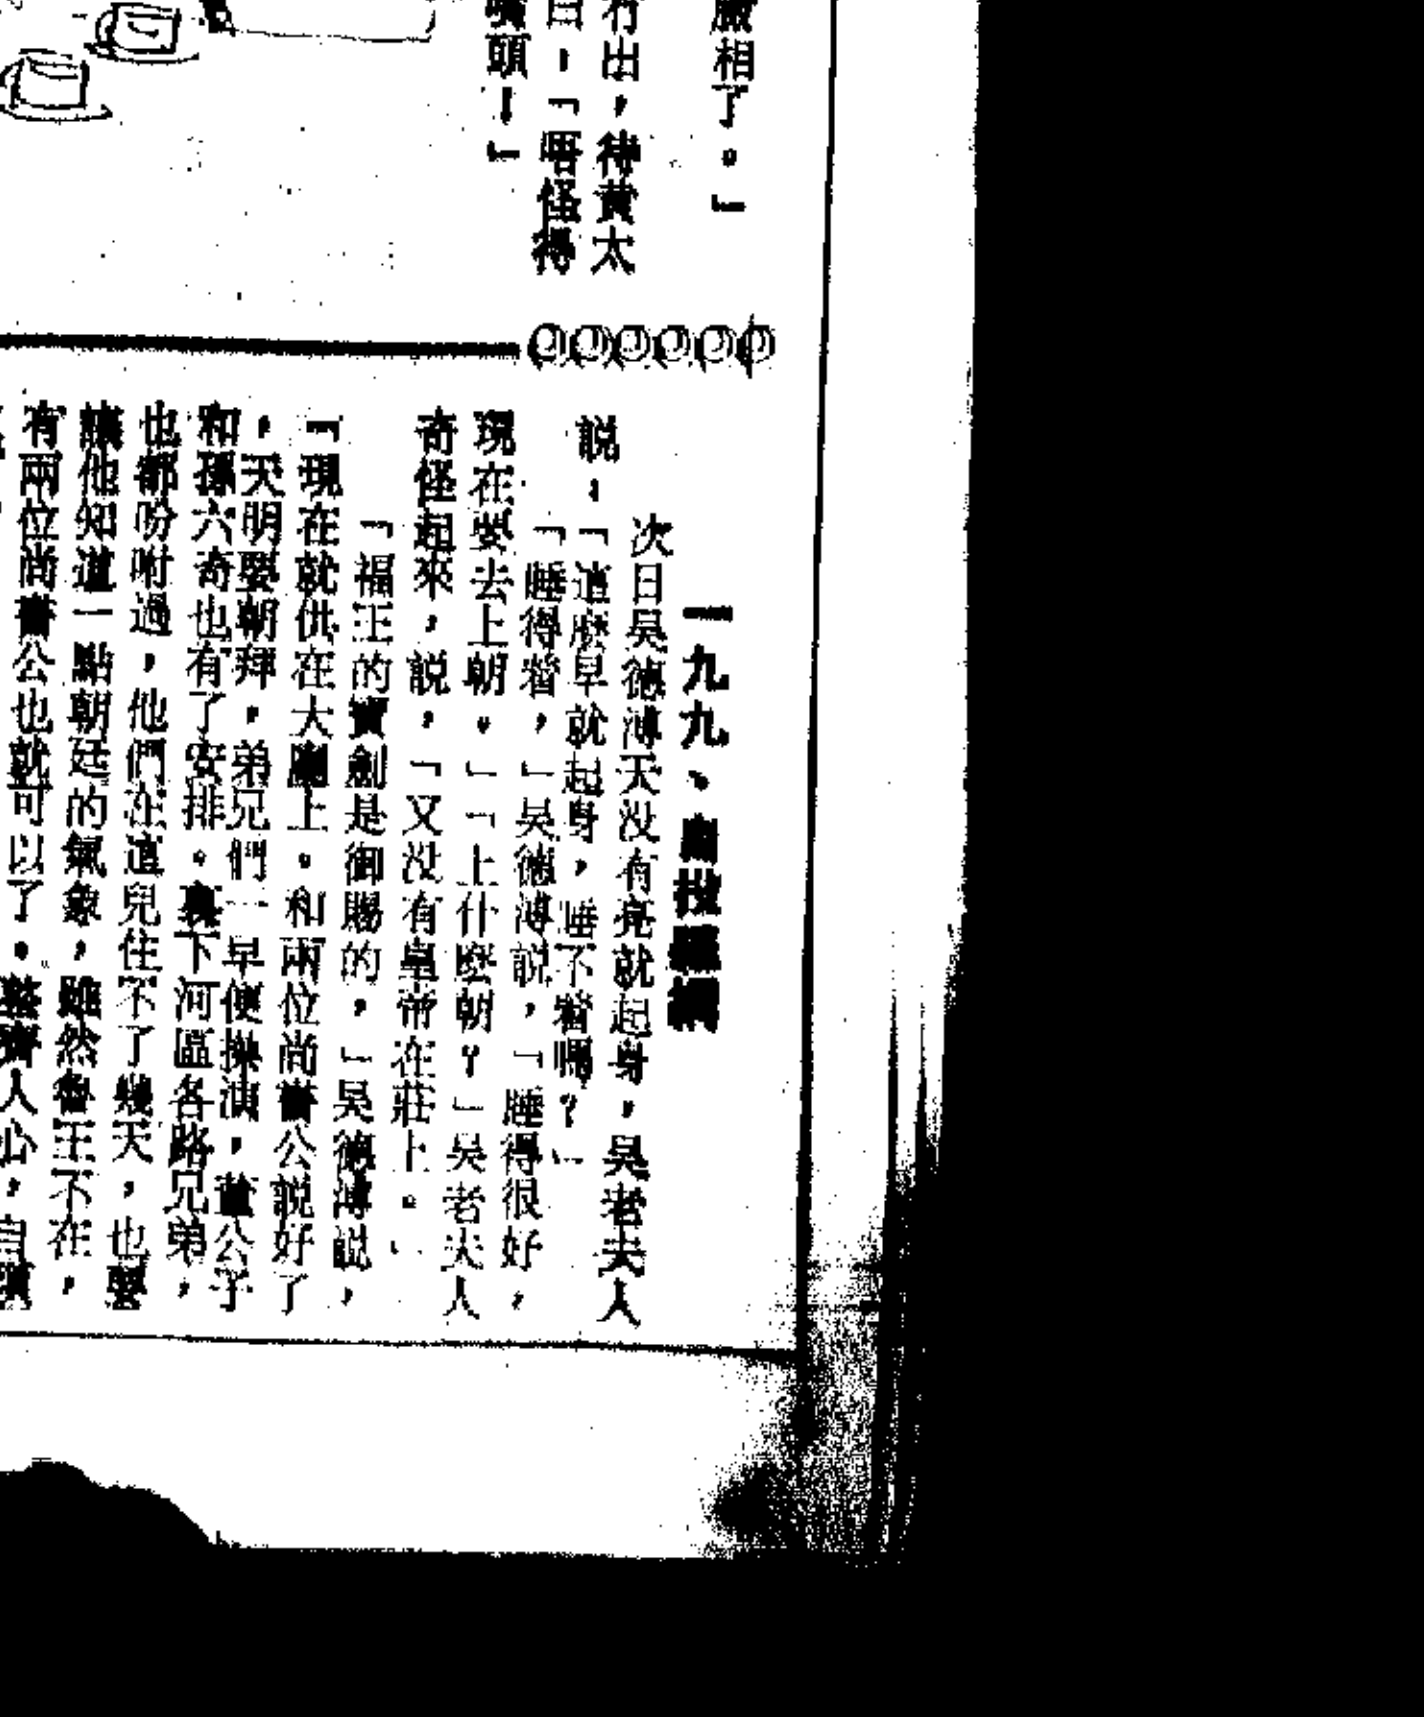 相了。」
冇出，待黃太
曰，「唔怪得
頭！」
一九九、自投羅網
次日吳德溥天没有亮就起身，吳老夫人
説：「這麽早就起身，睡不着嗎？」
「睡得着，」吳德溥説，「睡得很好，
現在要去上朝。」「上什麽朝？」吳老夫人
奇怪起來，説，「又没有皇帝在莊上。」
「福王的寶劍是御賜的，」吳德溥説，
「現在就供在大廳上。和兩位尚書公説好了
，天明要朝拜，弟兄們一早便操演，董公子
和孫六奇也有了安排。裏下河區各路兄弟，
也都吩咐過，他們在這兒住不了幾天，也要
讓他知道一點朝廷的氣象，雖然魯王不在，
有兩位尚書公也就可以了。整齊人心，自